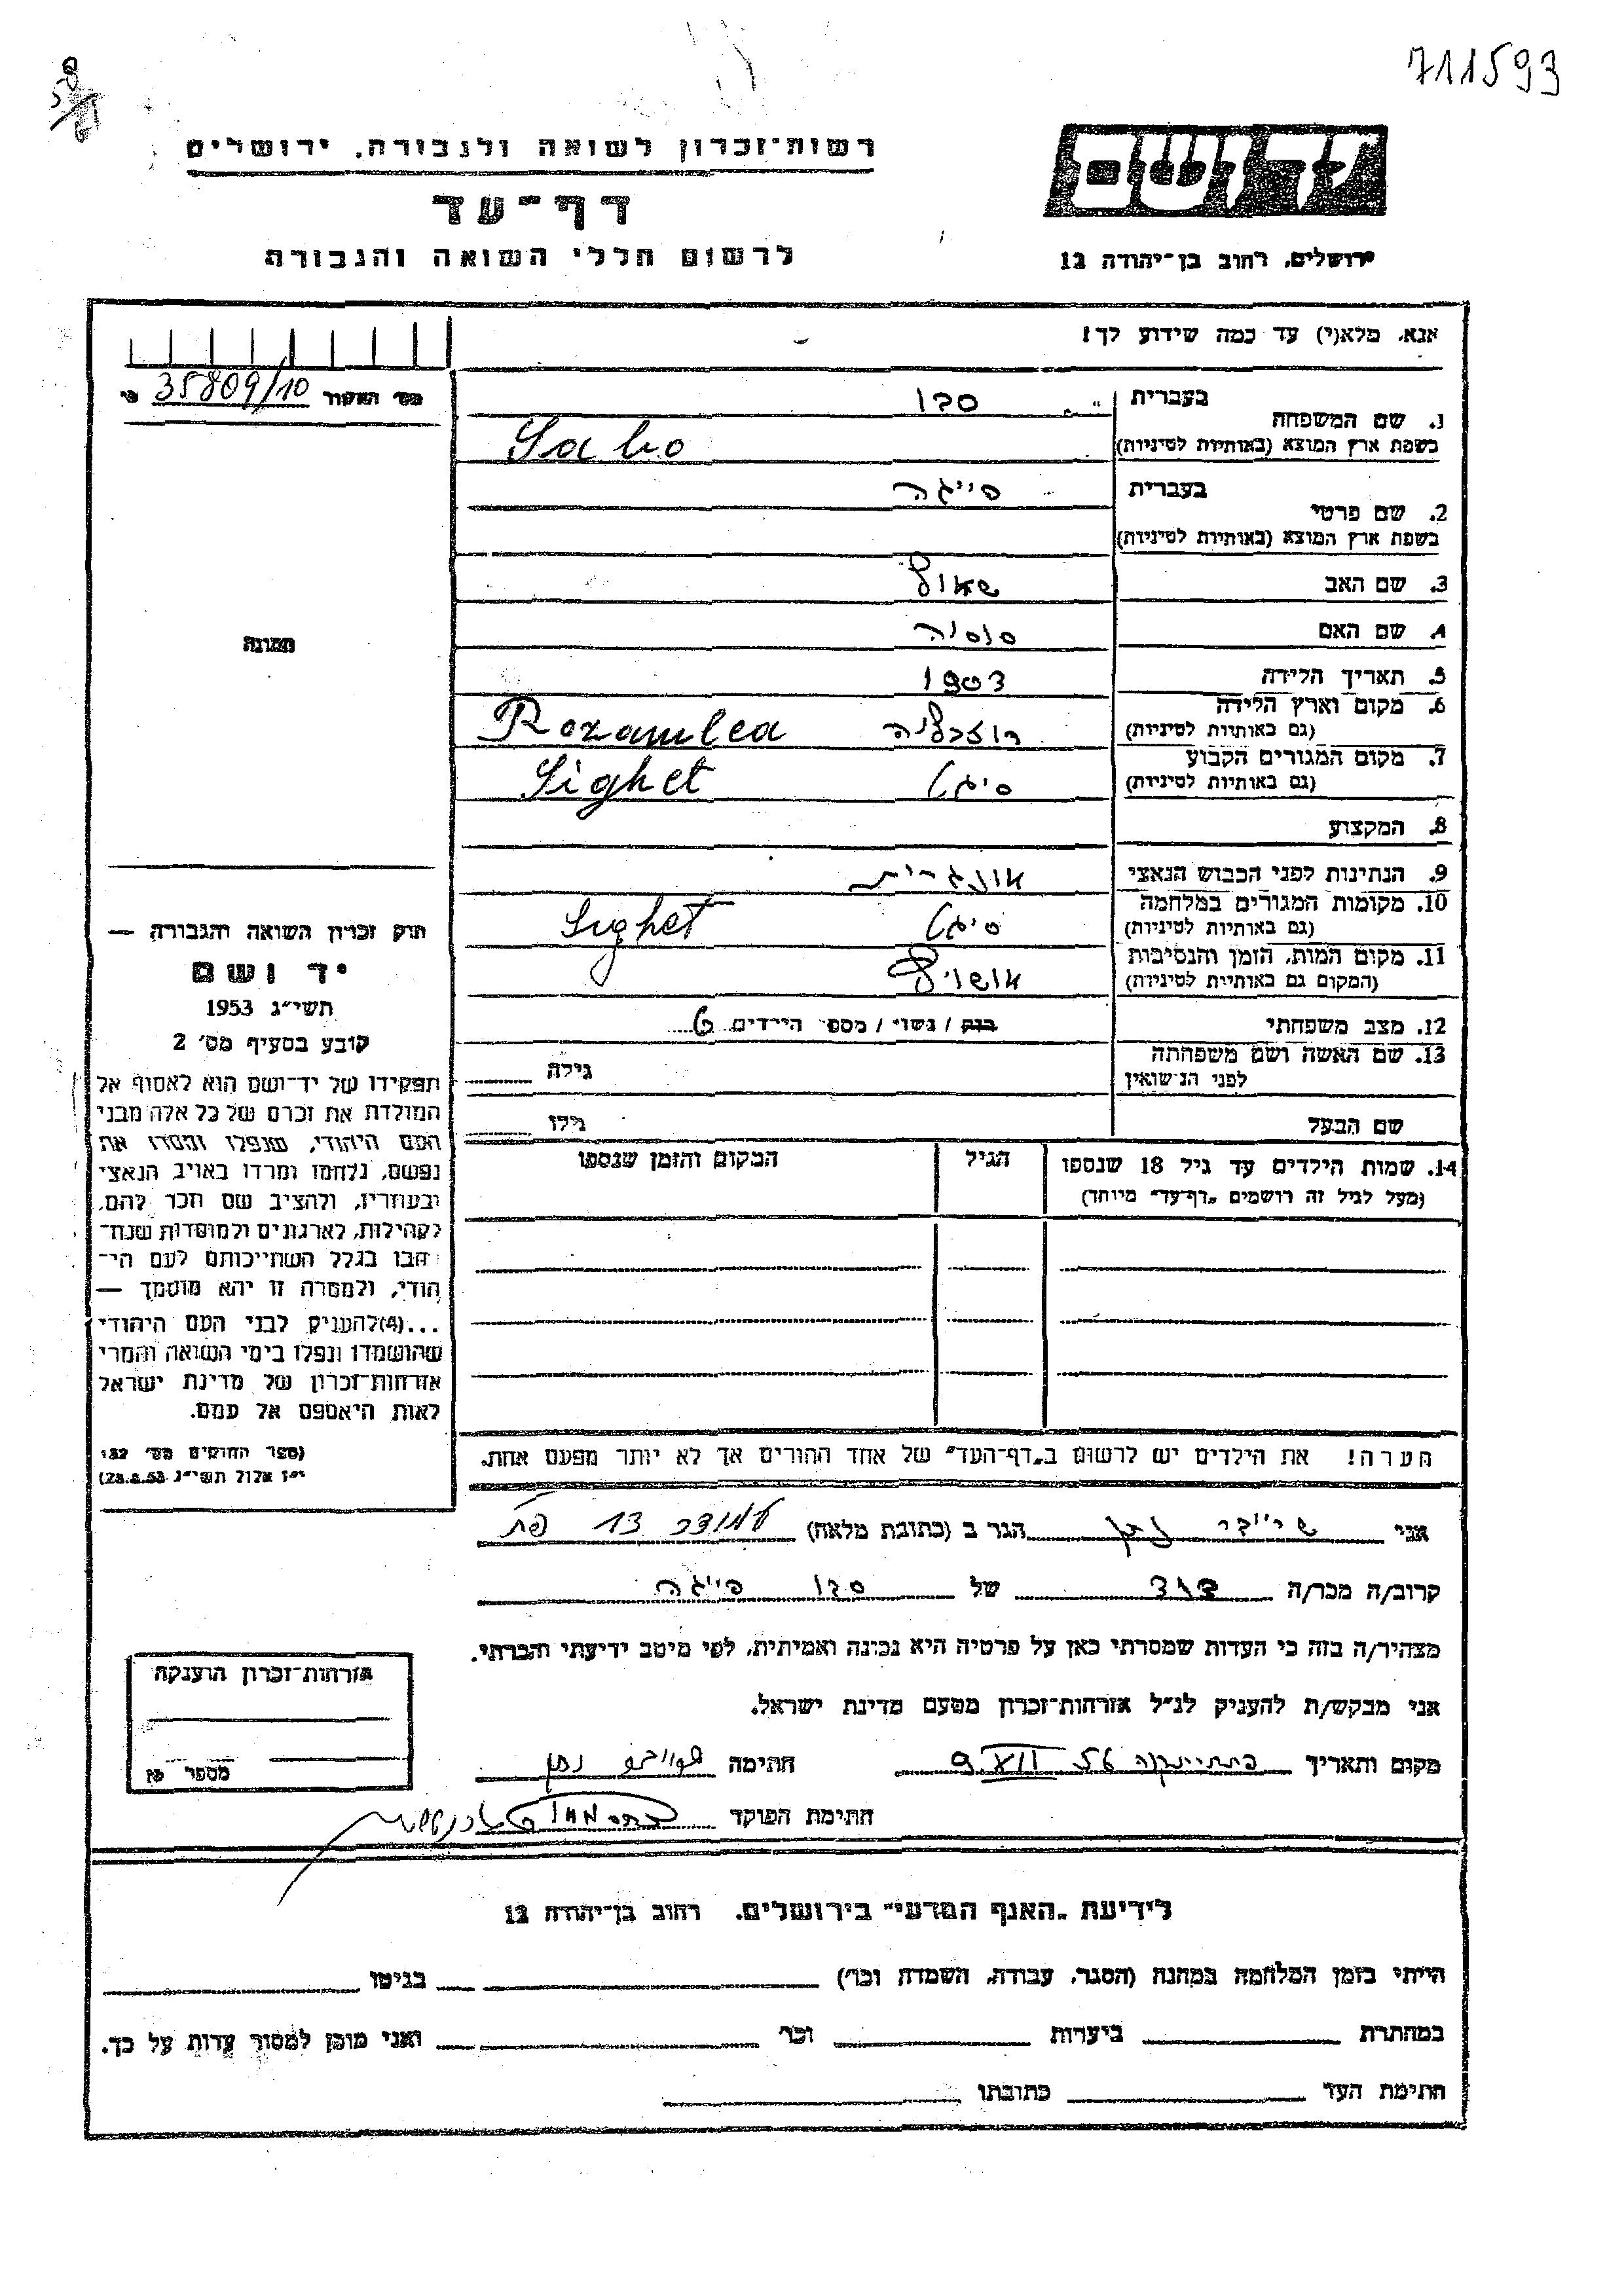 711593
רשות־זכרון לשואה ולגבורה, ירושלים
דף־עד
לרשום חללי השואה והגבורה
ירושלים, רחוב בן־יהודה 12
אנא, מלא(י) עד כמה שידוע לך!
מס׳ האשור 35809/10
1. שם המשפחה בעברית סבו
בשפת ארץ המוצא (באותיות לטיניות) Sabo
2. שם פרטי בעברית פייגה
בשפת ארץ המוצא (באותיות לטיניות)
3. שם האב שאול
4. שם האם סוסיה
5. תאריך הלידה 1903
6. מקום וארץ הלידה
(גם באותיות לטיניות) רוזבליה Rozavlea
7. מקום המגורים הקבוע
(גם באותיות לטיניות) סיגט Sighet
8. המקצוע
9. הנתינות לפני הכבוש הנאצי אונגרית
10. מקומות המגורים במלחמה
(גם באותיות לטיניות) סיגט Sighet
11. מקום המות, הזמן והנסיבות
(המקום גם באותיות לטיניות) אושויץ
12. מצב משפחתי רוק / נשוי / מספר הילדים 6
13. שם האשה ושם משפחתה
לפני הנישואין גילה
שם הבעל גילו
14. שמות הילדים עד גיל 18 שנספו הגיל המקום והזמן שנספו
(מעל לגיל זה רושמים "דף־עד" מיוחד)
תמונה
חוק זכרון השואה והגבורה —
יד ושם
תשי״ג 1953
קובע בסעיף מס׳ 2
תפקידו של יד־ושם הוא לאסוף אל
המולדת את זכרם של כל אלה מבני
העם היהודי, שנפלו ומסרו את
נפשם, נלחמו ומרדו באויב הנאצי
ובעוזריו, ולהציב שם וזכר להם,
לקהילות, לארגונים ולמוסדות שנח־
רבו בגלל השתייכותם לעם הי־
הודי, ולמטרה זו יהא מוסמך —
...(4) להעניק לבני העם היהודי
שהושמדו ונפלו בימי השואה והמרי
אזרחות־זכרון של מדינת ישראל
לאות היאספם אל עמם.
(ספר החוקים מס׳ 132,
י״ז אלול תשי״ג 28.8.53)
הערה! את הילדים יש לרשום ב"דף־העד" של אחד ההורים אך לא יותר מפעם אחת.
אני שניידר נתן הגר ב (כתובת מלאה) 13 פת
קרוב/ה מכר/ה של סבו פייגה
מצהיר/ה בזה כי העדות שמסרתי כאן על פרטיה היא נכונה ואמיתית, לפי מיטב ידיעתי והכרתי.
אני מבקש/ת להעניק לנ״ל אזרחות־זכרון מטעם מדינת ישראל.
מקום ותאריך 9 XII 56 חתימה
חתימת הפוקד
אזרחות־זכרון הוענקה
מספר
לידיעת "האגף המדעי" בירושלים, רחוב בן־יהודה 12
הייתי בזמן המלחמה במחנה (הסגר, עבודה, השמדה וכו׳) בגיטו
במחתרת ביערות וכו׳ ואני מוכן למסור עדות על כך.
חתימת העד כתובתו